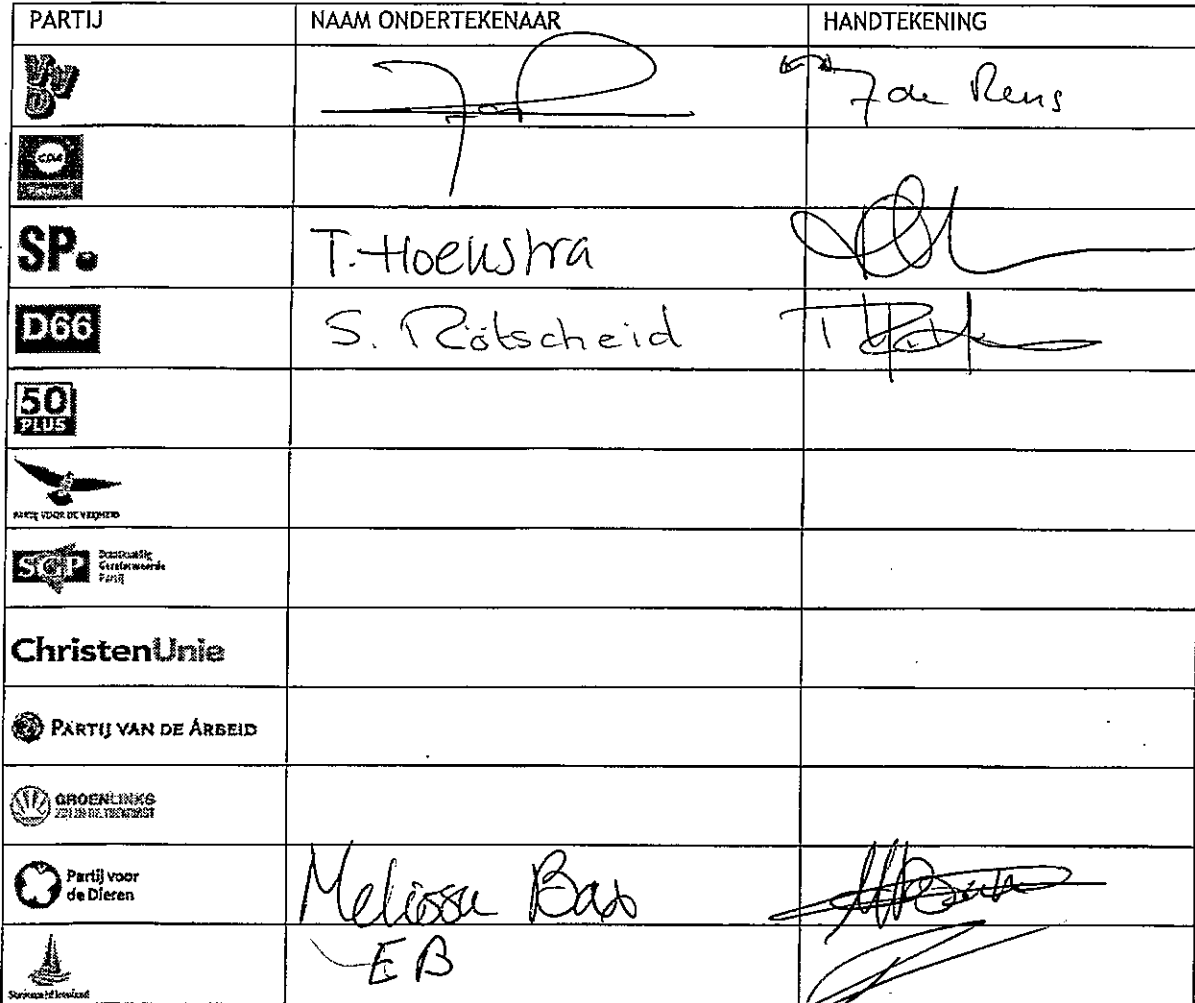 PARTIJ NAAM ONDERTEKENAAR HANDTEKENING
VVD de Rens
CDA
SP. T. Hoekstra
D66 S. Rötscheid
50
PLUS
PARTIJ VOOR DE VRIJHEID
SGP Staatkundig
Gereformeerde
Partij
ChristenUnie
PARTIJ VAN DE ARBEID
GROENLINKS
Partij voor
de Dieren Melissa Bax
EB